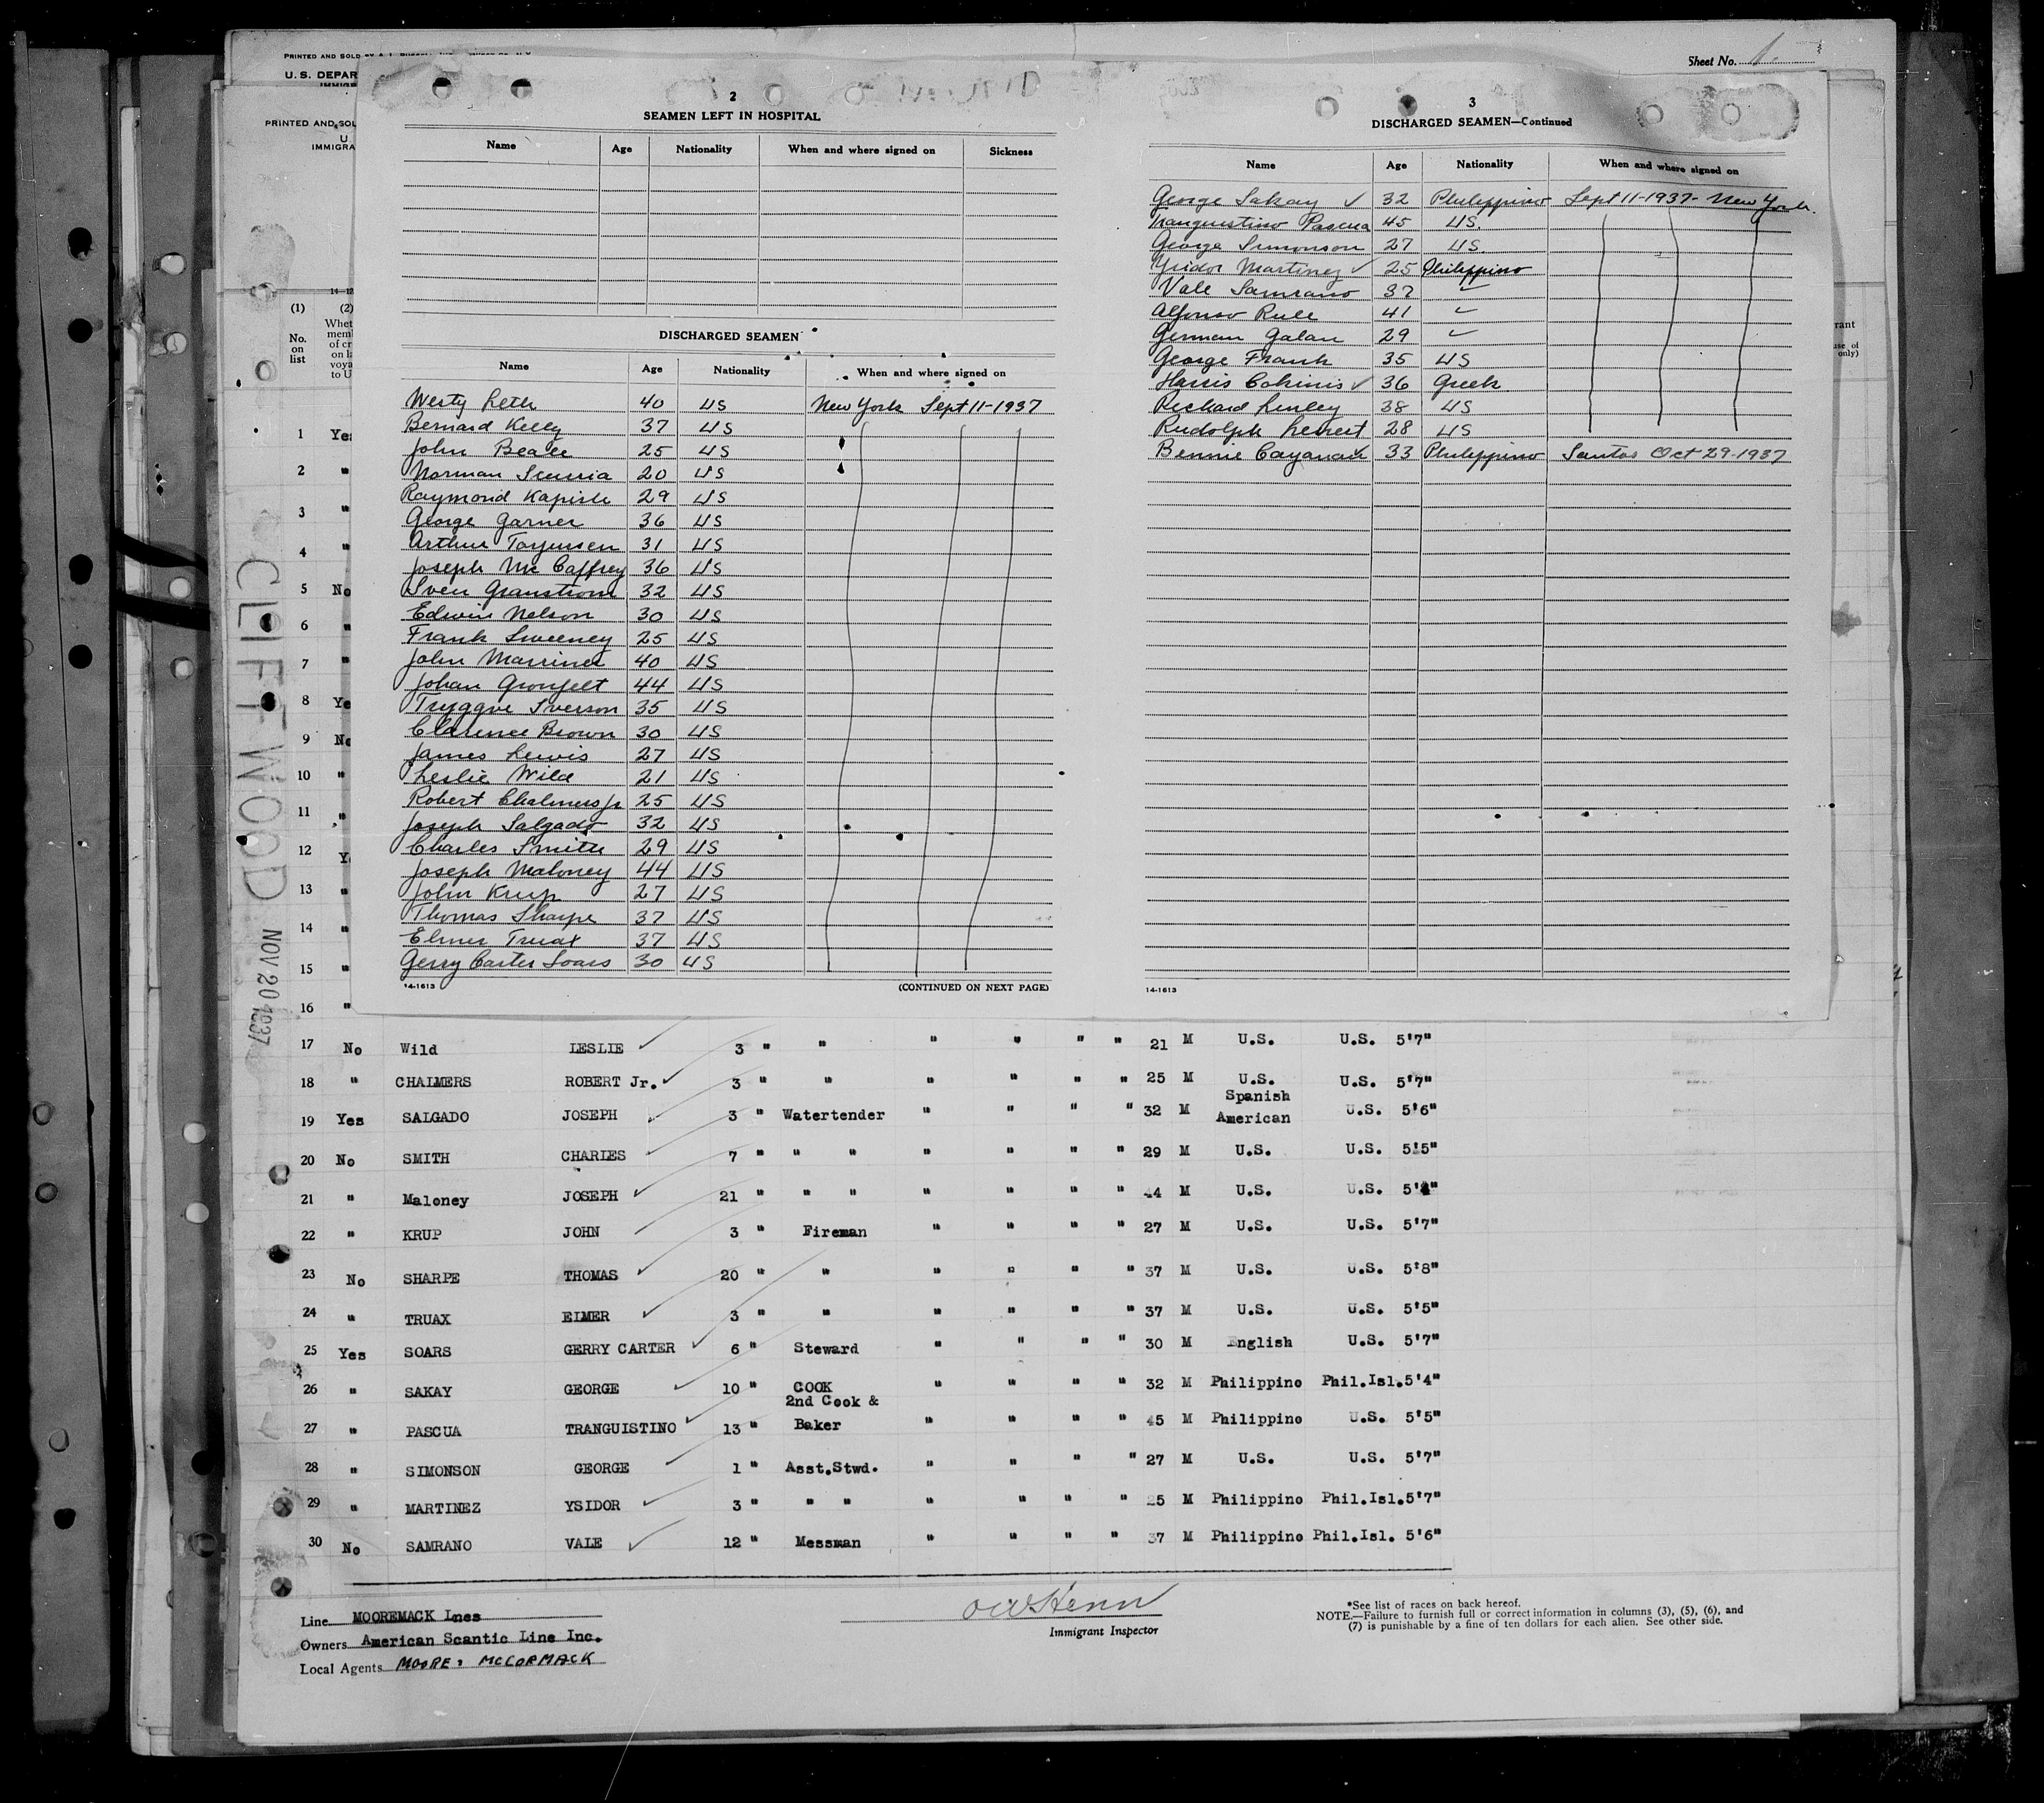 PRINTED AND SOLD BY
U.S. DEPAR
Sheet No. 1.
PRINTED AND SOL
U
IMMIGRA
(1)
No. on list
(2)
Whet
mem
of cr
on l
voya
to U
rant
use of
only)
CLIFFWOOD NOV 20 1937
2
SEAMEN LEFT IN HOSPITAL
Name Age Nationality When and where signed on Sickness
DISCHARGED SEAMEN
Name Age Nationality When and where signed on
Westy Leth 40 US New York Sept 11-1937
Bernard Kelly 37 US
John Beale 25 US
Norman 20 US
Raymond 29 US
George Garner 36 US
Arthur Torgensen 31 US
Joseph Mc Caffrey 36 US
Sven Granstrom 32 US
Edwin Nelson 30 US
Frank Sweeney 25 US
John Marriner 40 US
Johan Gronfelt 44 US
Tryggve Iverson 35 US
Clarence Brown 30 US
James Lewis 27 US
Leslie Wild 21 US
Robert Chalmers Jr 25 US
Joseph Salgado 32 US
Charles Smith 29 US
Joseph Maloney 44 US
John Krup 27 US
Thomas Sharpe 37 US
Elmer Truax 37 US
Gerry Carter Soars 30 US
14-1613 (CONTINUED ON NEXT PAGE)
3
DISCHARGED SEAMEN—Continued
Name Age Nationality When and where signed on
George Sakay ✓ 32 Philippino Sept 11-1937- New York.
Tranguistino Pascua 45 US.
George Simonson 27 US.
Ysidor Martinez ✓ 25 Philippino
Vale Samrano 37 ✓
Alfonso Rule 41 ✓
German Galan 29 ✓
George Frank 35 US
Harris Cokinis ✓ 36 Greek
Richard Linley 38 US
Rudolph 28 US
Bennie 33 Philippino Santos Oct 29-1937
14-1613
1 Yes
2 "
3 "
4 "
5 No
6 "
7 "
8 Ye
9 No
10 "
11 "
12 Y
13 "
14 "
15 "
16 "
17 No Wild LESLIE 3 " " " " " " 21 M U.S. U.S. 5'7"
18 " CHALMERS ROBERT Jr. 3 " " " " " " 25 M U.S. U.S. 5'7"
19 Yes SALGADO JOSEPH 3 " Watertender " " " " 32 M Spanish American U.S. 5'6"
20 No SMITH CHARLES 7 " " " " " " " 29 M U.S. U.S. 5'5"
21 " Maloney JOSEPH 21 " " " " " " " 44 M U.S. U.S. 5'4"
22 " KRUP JOHN 3 " Fireman " " " " 27 M U.S. U.S. 5'7"
23 No SHARPE THOMAS 20 " " " " " " 37 M U.S. U.S. 5'8"
24 " TRUAX ELMER 3 " " " " " " 37 M U.S. U.S. 5'5"
25 Yes SOARS GERRY CARTER 6 " Steward " " " " 30 M English U.S. 5'7"
26 " SAKAY GEORGE 10 " COOK " " " " 32 M Philippino Phil.Isl. 5'4"
27 " PASCUA TRANGUISTINO 13 " 2nd Cook & Baker " " " " 45 M Philippino U.S. 5'5"
28 " SIMONSON GEORGE 1 " Asst.Stwd. " " " " 27 M U.S. U.S. 5'7"
29 " MARTINEZ YSIDOR 3 " " " " " " " 25 M Philippino Phil.Isl. 5'7"
30 No SAMRANO VALE 12 " Messman " " " " 37 M Philippino Phil.Isl. 5'6"
Line MOOREMACK Lnes
Owners American Scantic Line Inc.
Local Agents MOORE & MCCORMACK
Immigrant Inspector
*See list of races on back hereof.
NOTE.—Failure to furnish full or correct information in columns (3), (5), (6), and
(7) is punishable by a fine of ten dollars for each alien. See other side.